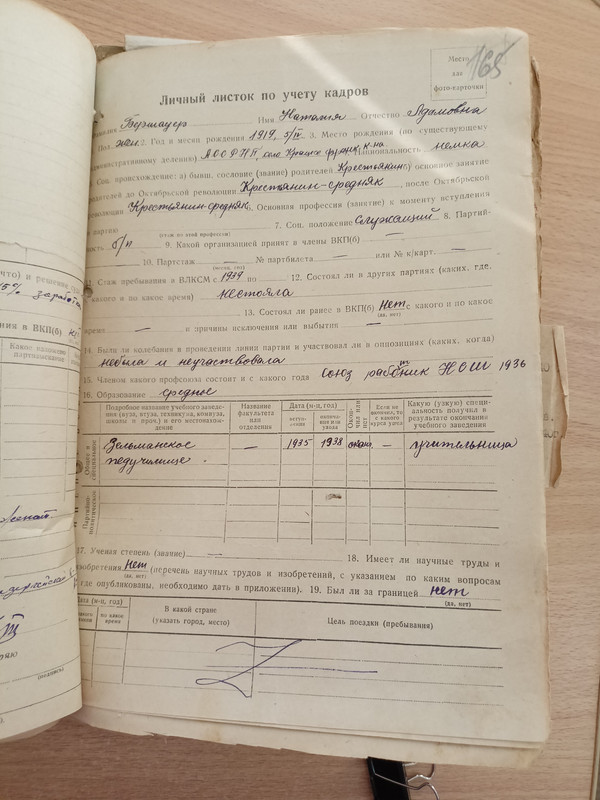 168
Место
для
фото-карточки
Личный листок по учету кадров
Бершауер Имя Наталья Отчество Адамовна
Пол жен 2. Год и месяц рождения 1919, 5/IV 3. Место рождения (по существующему
административному делению) АССРНП село Красно
немка
Соц. происхождение: а) бывш. сословие (звание) родителей Крестьянин основное занятие
родителей до Октябрьской революции Крестьянин-средняк, после Октябрьской
революции Крестьянин-средняк. Основная профессия (занятие) к моменту вступления
в партию 7. Соц. положение Служащий 8. Партий-
(стаж по этой профессии)
ность б/п 9. Какой организацией принят в члены ВКП(б) —
10. Партстаж — № партбилета — или № к/карт. —
(месяц, год)
Стаж пребывания в ВЛКСМ с 1939 по — 12. Состоял ли в других партиях (каких, где,
какого и по какое время) нестояла
13. Состоял ли ранее в ВКП(б) Нет с какого и по какое
(да, нет)
время — и причины исключения или выбытия —
14. Были ли колебания в проведении линии партии и участвовал ли в оппозициях (каких, когда)
небыла и неучаствовала
15. Членом какого профсоюза состоит и с какого года Союз НСШ 1936
16. Образование среднее
Подробное название учебного заведе-
ния (вуза, втуза, техникума, комвуза,
школы и проч.) и его местонахож-
дение
Название
факультета
или
отделения
Дата (м-ц, год)
вступ-
ления
оконча-
ния или
ухода
Если не
окончил, то
с какого
курса ушел
Какую (узкую) специ-
альность получил в
результате окончания
учебного заведения
Общее и
специальное
Зельманское — 1935 1938 — учительница
педучилище.
Партийно-
политическое
17. Ученая степень (звание) — 18. Имеет ли научные труды и
изобретения Нет (перечень научных трудов и изобретений, с указанием по каким вопросам
(да, нет)
где опубликованы, необходимо дать в приложении). 19. Был ли за границей нет
(да, нет)
Дата (м-ц, год)
по какое
время
В какой стране
(указать город, место)
Цель поездки (пребывания)